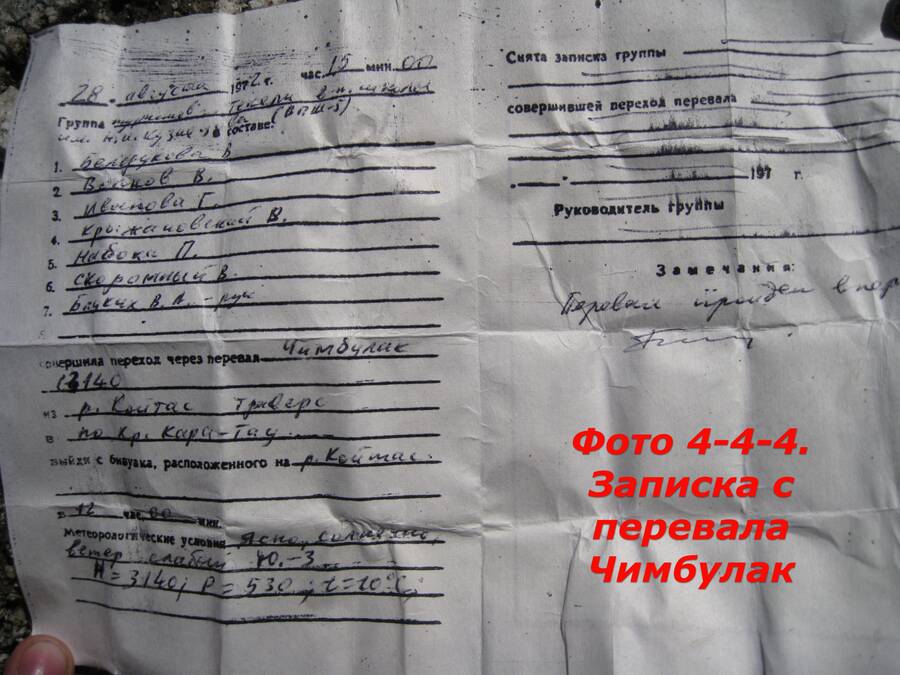 28 августа 1972 г. час. 15 мин. 00
Группа туристов Текели в.п. школы
им. Н.И. Кузнецова составе: (ВПШ-5)
1. Белдукова В
2 Воинов В.
3. Иванова Г.
4. Крыжановский В.
5. Набока П.
6. Скоромный В.
7. Блуких В. А. - рук
8
совершила переход через перевал Чимбулак
3140
из р. Койтас траверс
в по хр. Кара-Тау
выйдя с бивуака, расположенного на р. Койтас.
в 12 час. 00 мин.
метеорологические условия Ясно, солнечно,
ветер слабый Ю.-З
H = 3140; P = 530; t = 10°C;
Снята записка группы
совершившей переход перевала
197 г.
Руководитель группы
Замечания:
Перевал пройден впер
Фото 4-4-4.
Записка с
перевала
Чимбулак